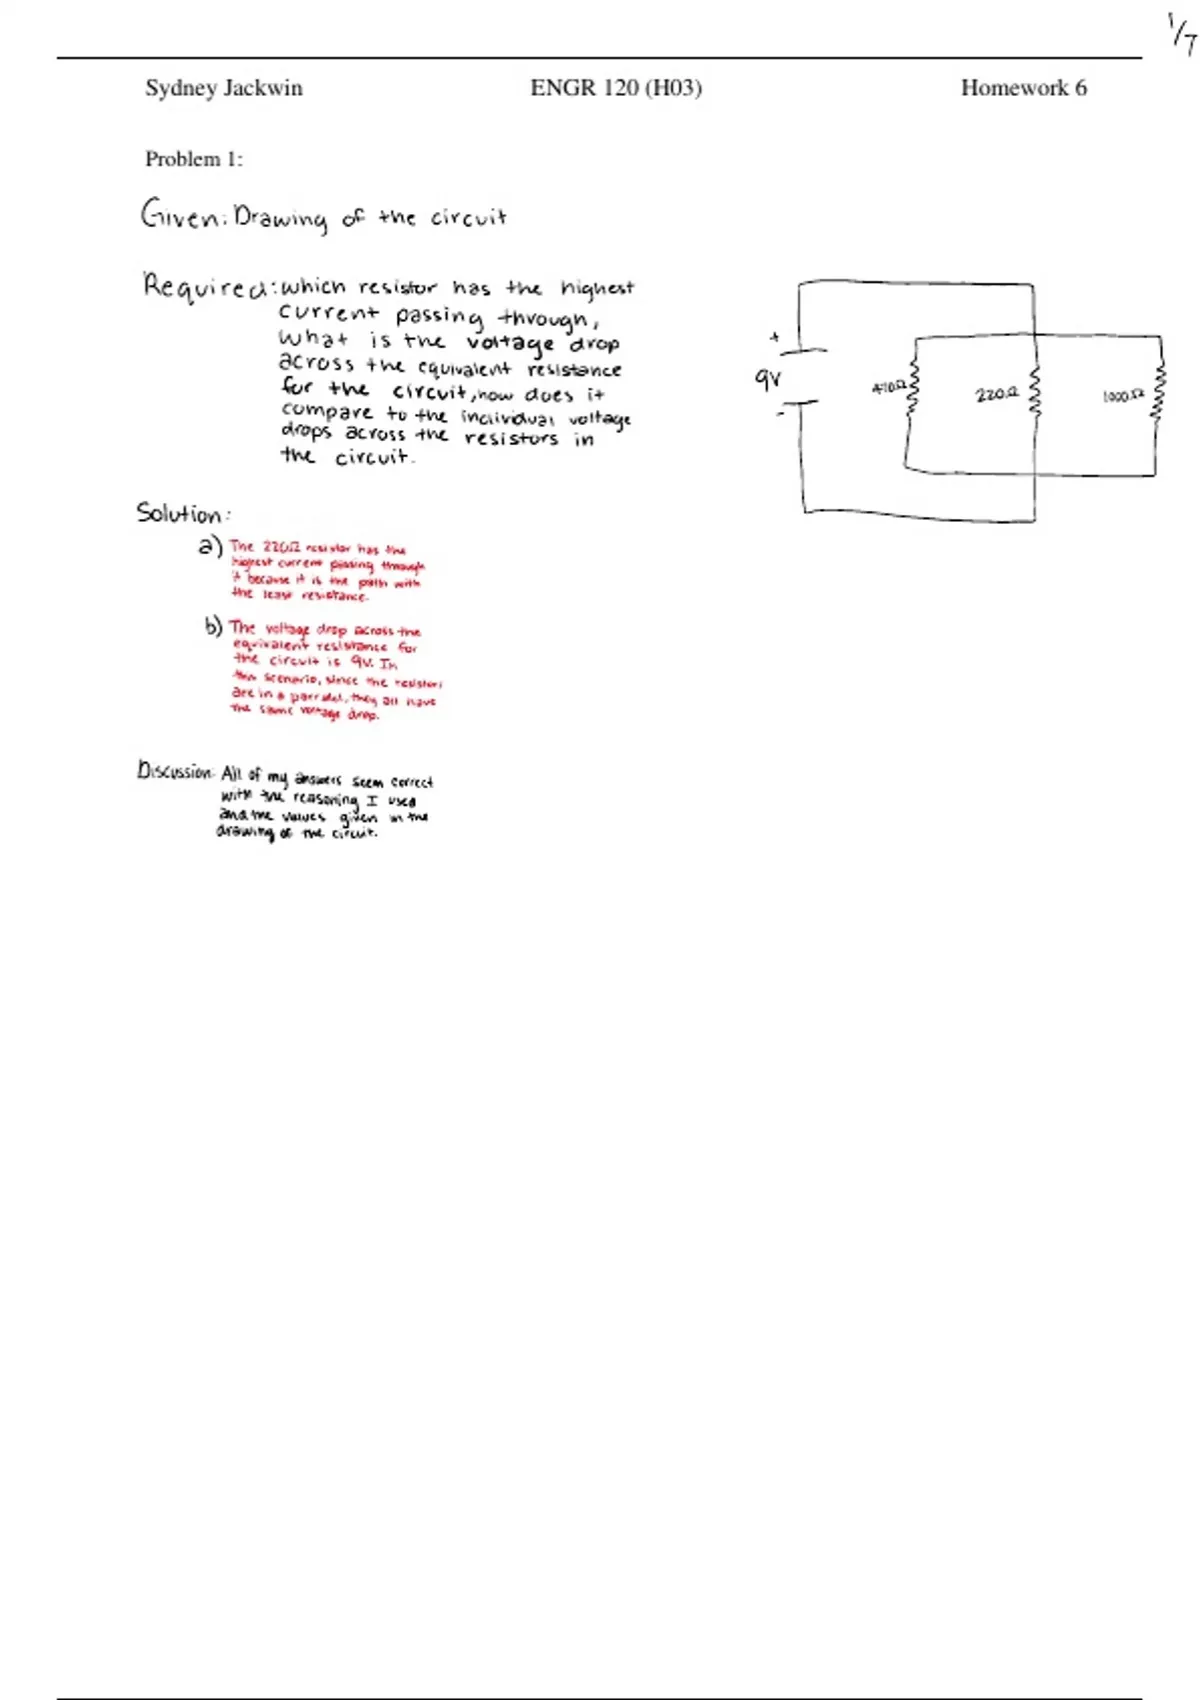 1/7
Sydney Jackwin ENGR 120 (H03) Homework 6
Problem 1:
Given: Drawing of the circuit
Required: which resistor has the highest
current passing through,
what is the voltage drop
across the equivalent resistance
for the circuit, how does it
compare to the individual voltage
drops across the resistors in
the circuit.
+
9V
-
470Ω
220Ω
1000Ω
Solution:
a) The 220Ω resistor has the
highest current passing through
it because it is the path with
the least resistance.
b) The voltage drop across the
equivalent resistance for
the circuit is 9V. In
this scenario, since the resistors
are in a parralel, they all have
the same voltage drop.
Discussion: All of my answers seem correct
with the reasoning I used
and the values given in the
drawing of the circuit.